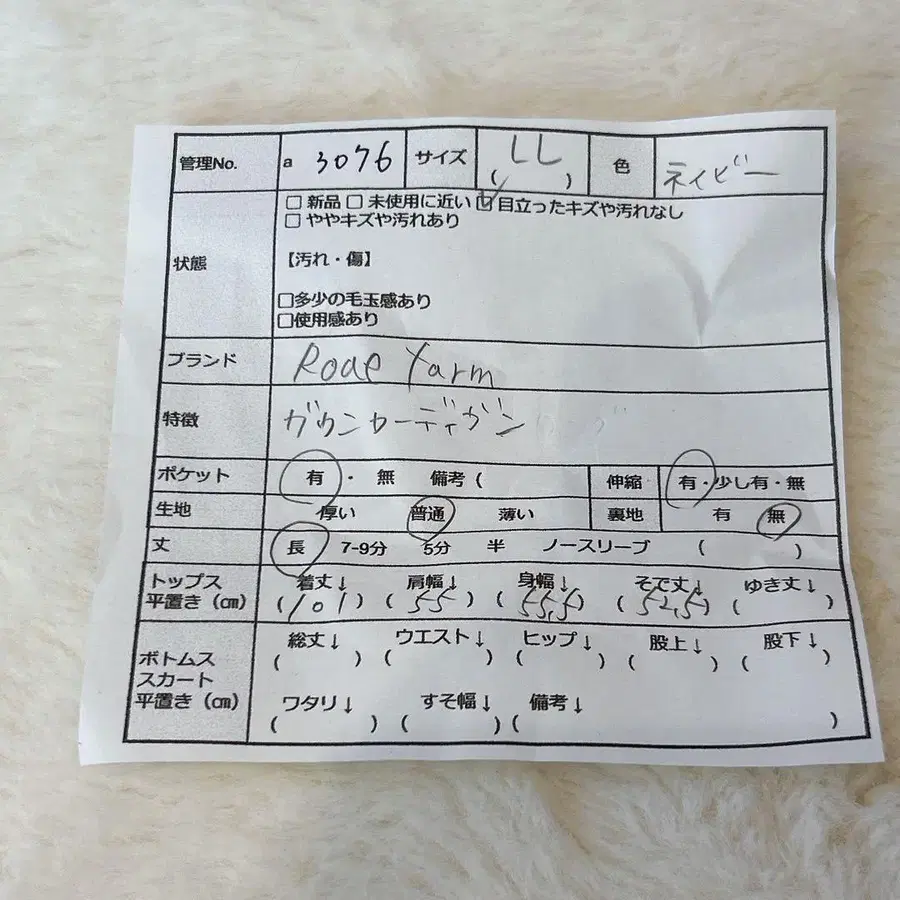 管理No. a 3076 サイズ LL ( ) 色 ネイビー
□ 新品 □ 未使用に近い ☑ 目立ったキズや汚れなし
□ ややキズや汚れあり
状態 【汚れ・傷】
□多少の毛玉感あり
□使用感あり
ブランド Roae Yarm
特徴 ガウンカーディガン
ポケット 有 ・ 無 備考 ( 伸縮 有・少し有・無
生地 厚い 普通 薄い 裏地 有 無
丈 長 7-9分 5分 半 ノースリーブ ( )
トップス 着丈↓ 肩幅↓ 身幅↓ そで丈↓ ゆき丈↓
平置き (㎝) (101) (55) (55,5) (52,5) ( )
ボトムス 総丈↓ ウエスト↓ ヒップ↓ 股上↓ 股下↓
スカート ( ) ( ) ( ) ( ) ( )
平置き (㎝) ワタリ↓ すそ幅↓ 備考↓
( ) ( ) ( )